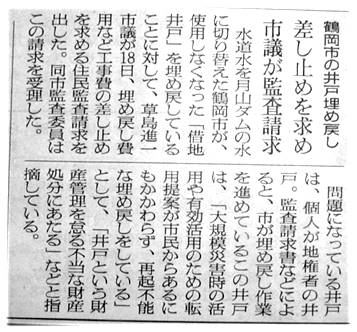 鶴岡市の井戸埋め戻し
差し止めを求め
市議が監査請求
水道水を月山ダムの水
に切り替えた鶴岡市が、
使用しなくなった「借地
井戸」を埋め戻している
ことに対して、草島進一
市議が18日、埋め戻し費
用など工事費の差し止め
を求める住民監査請求を
出した。同市監査委員は
この請求を受理した。
問題になっている井戸
は、個人が地権者の井
戸。監査請求書などによ
ると、市が埋め戻し作業
を進めているこの井戸
は、「大規模災害時の活
用や有効活用のための転
用提案が市民からあるに
もかかわらず、再起不能
な埋め戻しをしている」
として、「井戸という財
産管理を怠る不当な財産
処分にあたる」などと指
摘している。